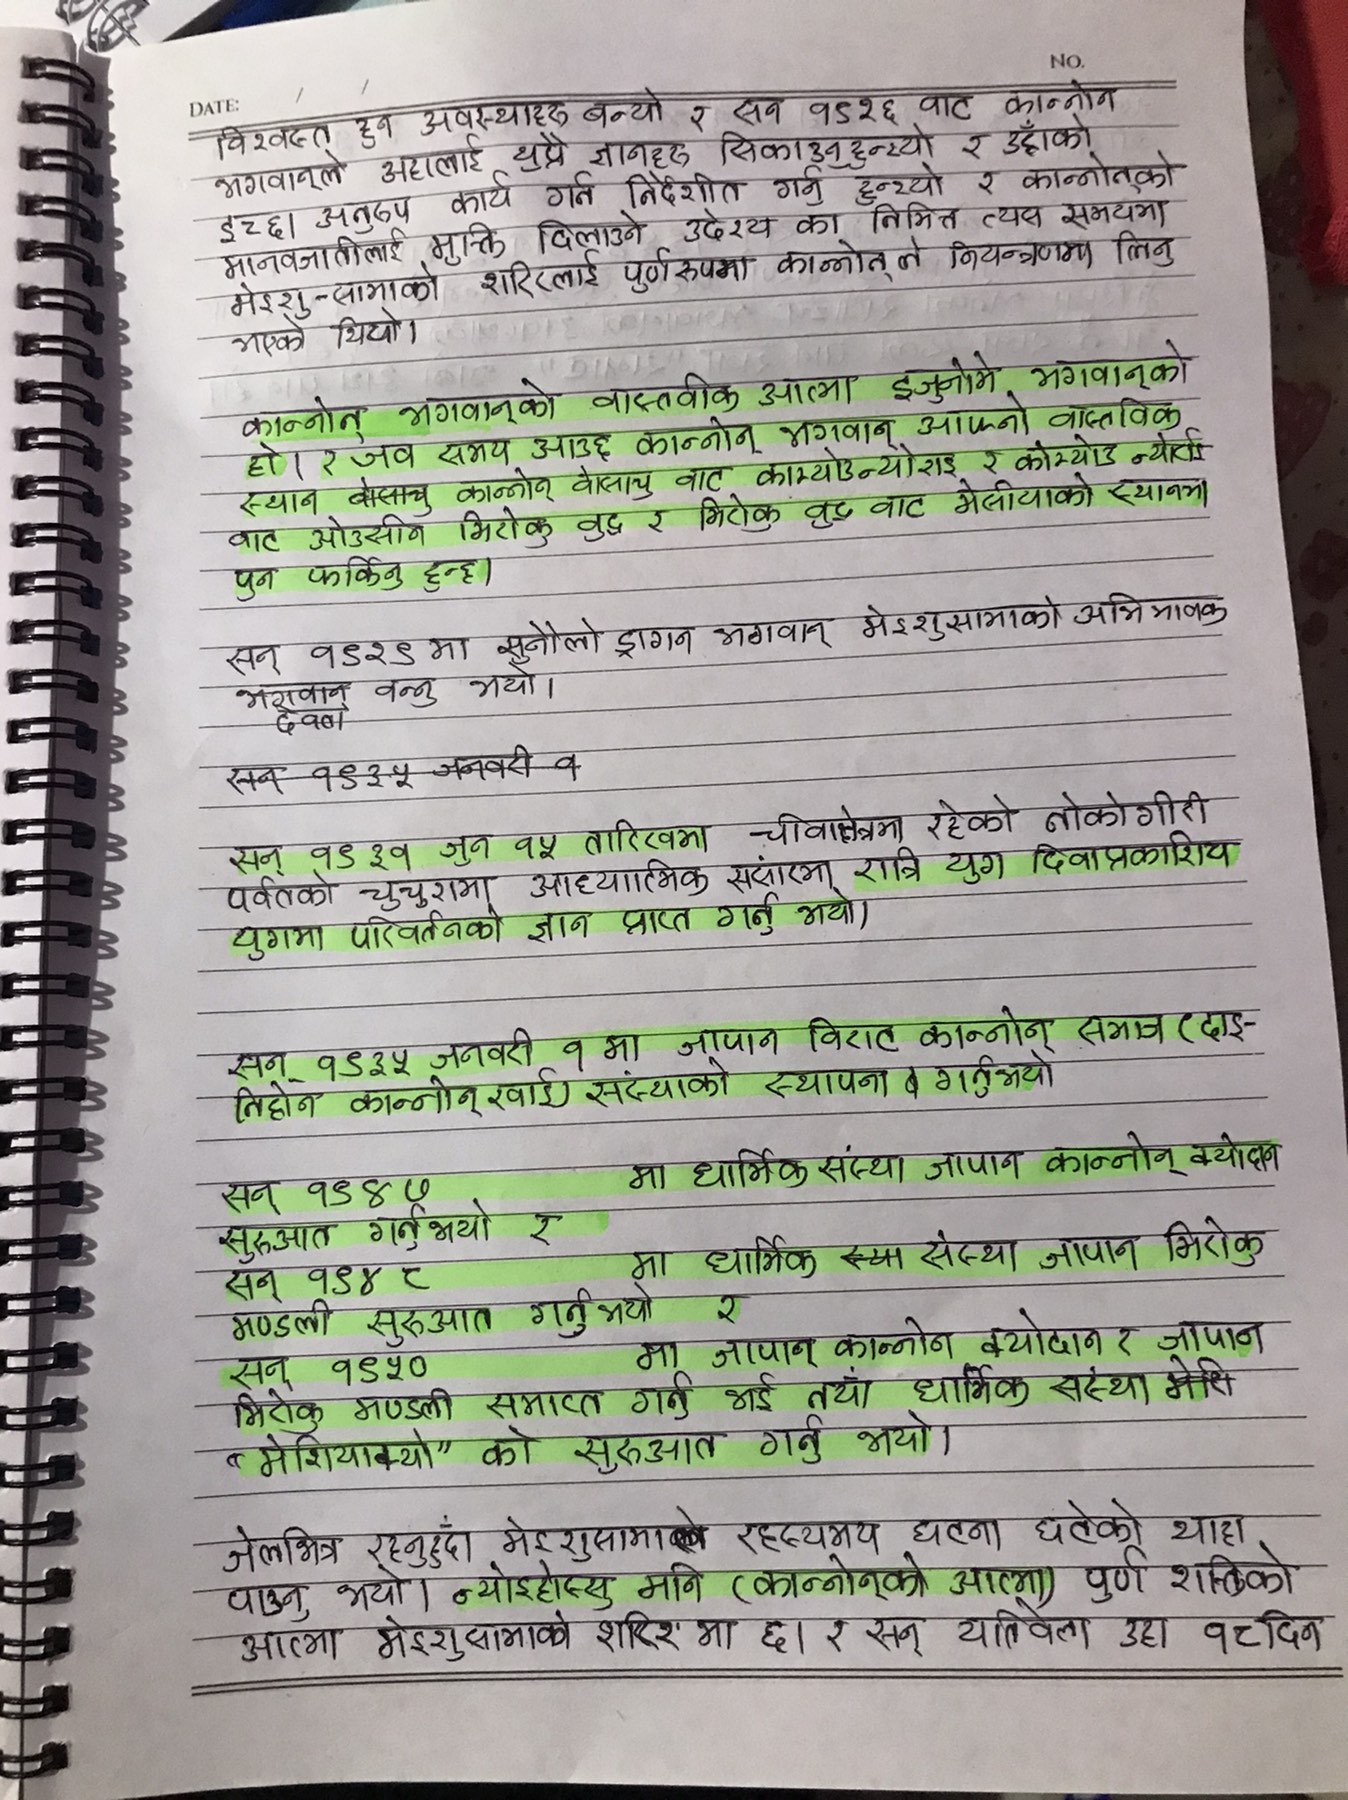 NO.
DATE: / /
विश्वस्त हुन अवस्थाहरु बन्यो र सन १९२६ बाट कान्नोन
भगवान्ले उहालाई थुप्रै ज्ञानहरु सिकाउनुहुन्थ्यो र उहाँको
इच्छा अनुरुप कार्य गर्न निर्देशीत गर्नु हुन्थ्यो र कान्नोन्को
मानवजातीलाई मुक्ति दिलाउने उदेश्य का निमित्त त्यस समयमा
मेइशु-सामाको शरिरलाई पुर्णरुपमा कान्नोन् ले नियन्त्रणमा लिनु
भएको थियो।
कान्नोन् भगवान्को वास्तवीक आत्मा इजुनोमे भगवान्को
हो। र जव समय आउछ कान्नोन् भगवान् आफ्नो वास्तविक
स्थान वोसाचु कान्नोन् वोसाचु वाट काम्योउन्योराइ र कोम्योउ न्योराई
वाट ओउसीन मिरोकु वुद्ध र मिरोकु वुद्ध वाट मेसीयाको स्थानमा
पुन फर्किनु हुन्छ।
सन् १९२९ मा सुनौलो ड्रागन भगवान् मेइशुसामाको अभिभावक
भगवान् वन्नु भयो।
देवता
सन १९३५ जनवरी १
सन् १९३१ जुन १५ तारिखमा चीवाक्षेत्रमा रहेको नोकोगीरी
पर्वतको चुचुरामा आध्यात्मिक संसारमा रात्रि युग दिवाप्रकाशिय
युगमा परिवर्तनको ज्ञान प्राप्त गर्नु भयो।
सन् १९३५ जनवरी १ मा जापान विराट कान्नोन् समाज (दाइ-
निहोन कान्नोन् खाई) संस्थाको स्थापना गर्नुभयो
सन् १९४७ मा धार्मिक संस्था जापान कान्नोन् क्योदान
सुरुआत गर्नुभयो र
सन् १९४८ मा धार्मिक स्था संस्था जापान मिरोकु
मण्डली सुरुआत गर्नुभयो र
सन् १९५० मा जापान् कान्नोन क्योदान र जापान
मिरोकु मण्डली समाप्त गर्नु भई नयाँ धार्मिक संस्था मेसि
"मेशियाक्यो" को सुरुआत गर्नु भयो।
जेलभित्र रहनुहुँदा मेइशुसामाले रहस्यमय घटना घटेको थाहा
पाउनु भयो। न्योइहोस्यु मनि (कान्नोन्को आत्मा) पुर्ण शक्तिको
आत्मा मेइशुसामाको शरिर मा छ। र सन् यतिवेला उहा १८ दिन